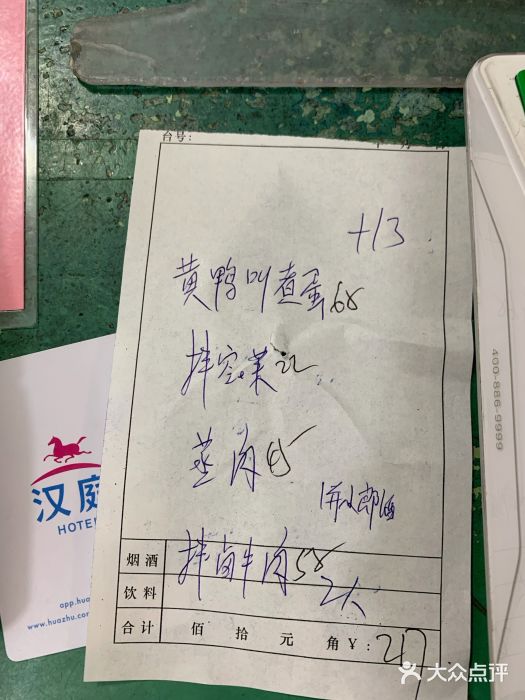 台号:
+13
黄鸭叫煮蛋68
拌空菜22
蒸肉45
1瓶小郎酒
烟酒
拌卤牛肉58
饮料
2人
合计 佰 拾 元 角 ¥: 217
汉庭
HOTE
app.hua
www.huazhu.com
400-886-9999
大众点评